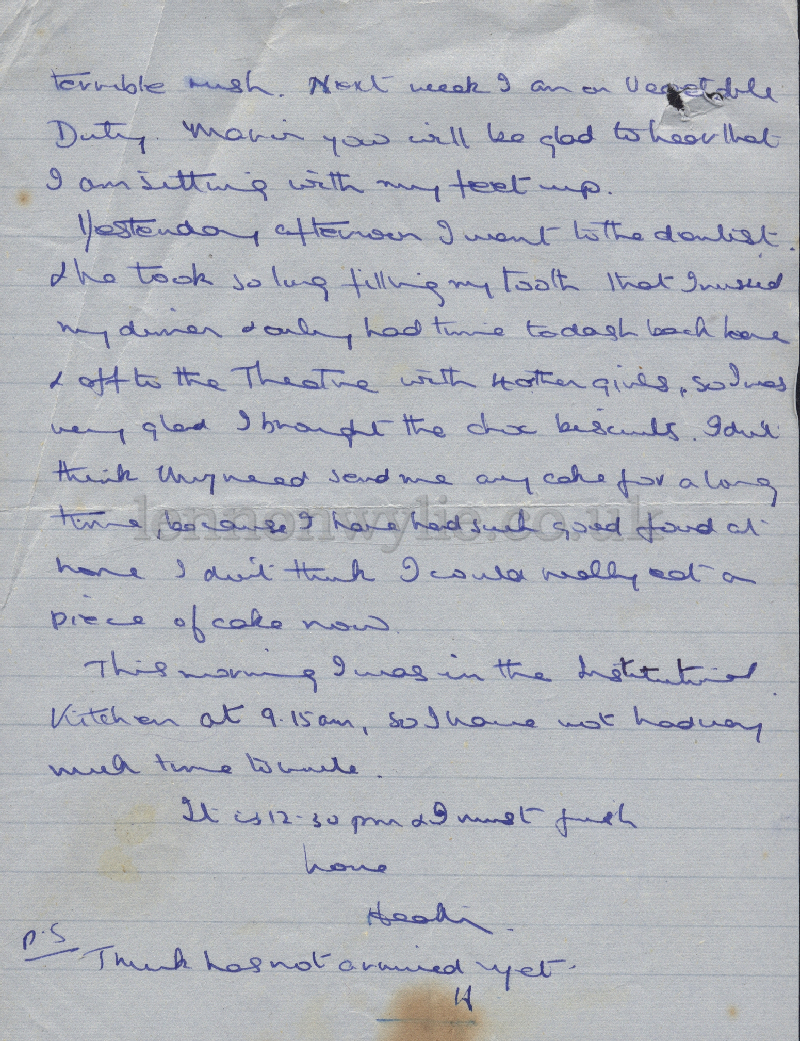 terrible rush. Next week I am on Vegetable
Duty. Mavis you will be glad to hear that
I am sitting with my feet up.
Yesterday afternoon I went to the dentist.
& he took so long filling my tooth that I missed
my dinner & only had time to dash back here
& off to the Theatre with 4 other girls, so I was
very glad I brought the choc biscuits. I don't
think you need send me any cake for a long
time, because I have had such good food at
home I don't think I could really eat a
piece of cake now.
This morning I was in the Institutional
Kitchen at 9.15 am, so I have not had very
much time to write.
It is 12.30 pm & I must finish
Love
Heather.
P.S Trunk has not arrived yet.
H
lennonwylie.co.uk